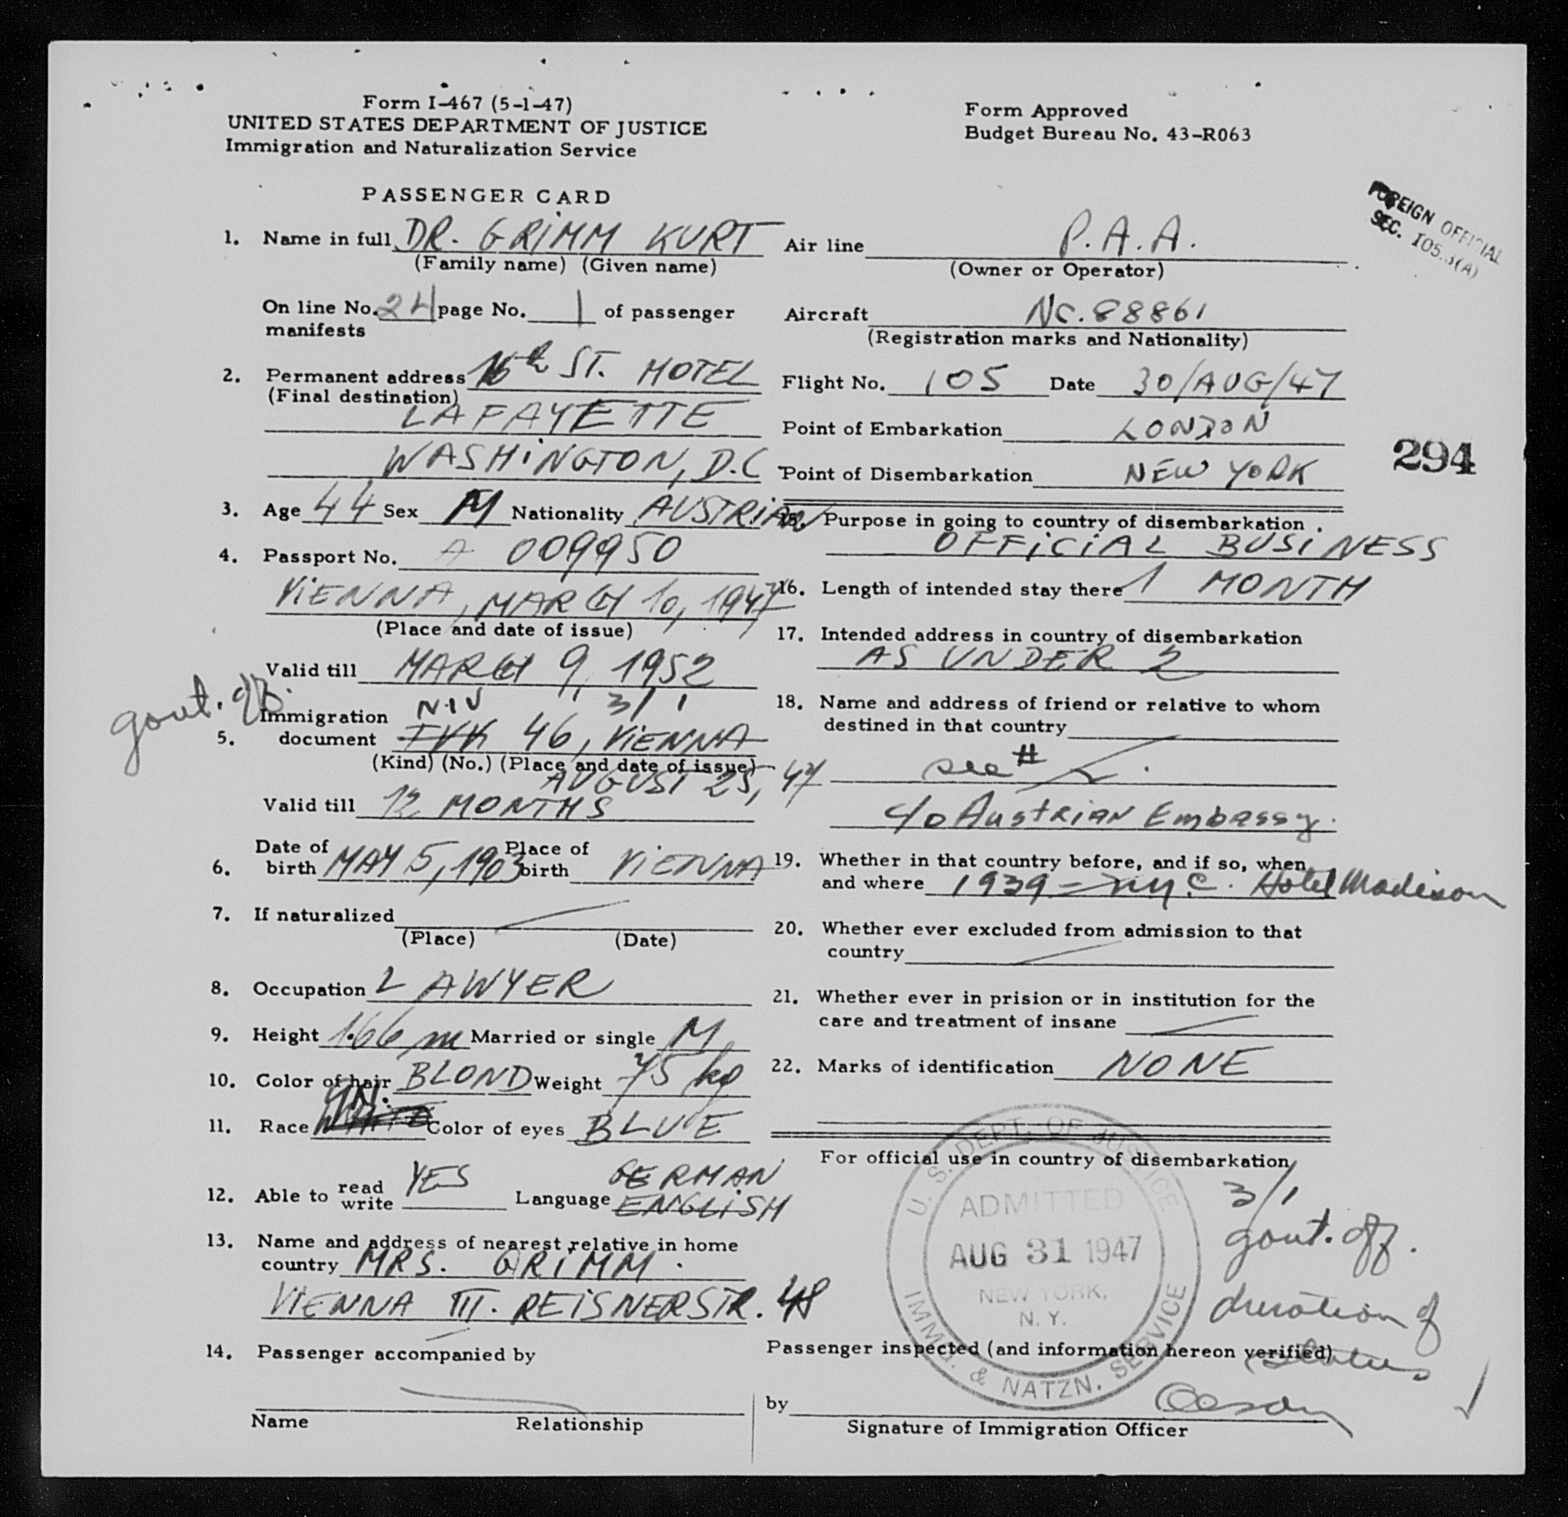 Form I-467 (5-1-47)
UNITED STATES DEPARTMENT OF JUSTICE
Immigration and Naturalization Service
Form Approved
Budget Bureau No. 43-R063
PASSENGER CARD
FOREIGN OFFICIAL
SEC.
1. Name in full DR. GRIMM KURT
(Family name) (Given name)
On line No. 24 page No. 1 of passenger
manifests
2. Permanent address 16th ST. HOTEL
(Final destination)
LAFAYETTE
WASHINGTON, D.C
3. Age 44 Sex M Nationality AUSTRIAN
4. Passport No. A 009950
VIENNA, MARCH 10, 1947
(Place and date of issue)
Valid till MARCH 9, 1952
govt. off.
NIV 3/1
5. Immigration document 46, VIENNA
(Kind) (No.) (Place and date of issue)
AUGUST 25, 47
Valid till 12 MONTHS
6. Date of birth MAY 5, 1903 Place of birth VIENNA
7. If naturalized
(Place) (Date)
8. Occupation LAWYER
9. Height 1.66 m Married or single M
10. Color of hair BLOND Weight 75 kg
11. Race WHITE Color of eyes BLUE
12. Able to read write YES Language GERMAN
ENGLISH
13. Name and address of nearest relative in home
country MRS. GRIMM.
VIENNA III. REISNERSTR. 48
14. Passenger accompanied by
Name Relationship
Air line P.A.A.
(Owner or Operator)
Aircraft NC.88861
(Registration marks and Nationality)
Flight No. 105 Date 30/AUG/47
Point of Embarkation LONDON
294
Point of Disembarkation NEW YORK
15. Purpose in going to country of disembarkation
OFFICIAL BUSINESS
16. Length of intended stay there 1 MONTH
17. Intended address in country of disembarkation
AS UNDER 2
18. Name and address of friend or relative to whom
destined in that country
see # 2.
c/o Austrian Embassy.
19. Whether in that country before, and if so, when
and where 1939 = NYC. Hotel Madison
20. Whether ever excluded from admission to that
country
21. Whether ever in prision or in institution for the
care and treatment of insane
22. Marks of identification NONE
For official use in country of disembarkation
3/1
govt. off.
duration of
status
U. S. DEPT. OF JUSTICE
ADMITTED
AUG 31 1947
NEW YORK,
N. Y.
IMMG. & NATZN. SERVICE
Passenger inspected (and information hereon verified)
by
Signature of Immigration Officer